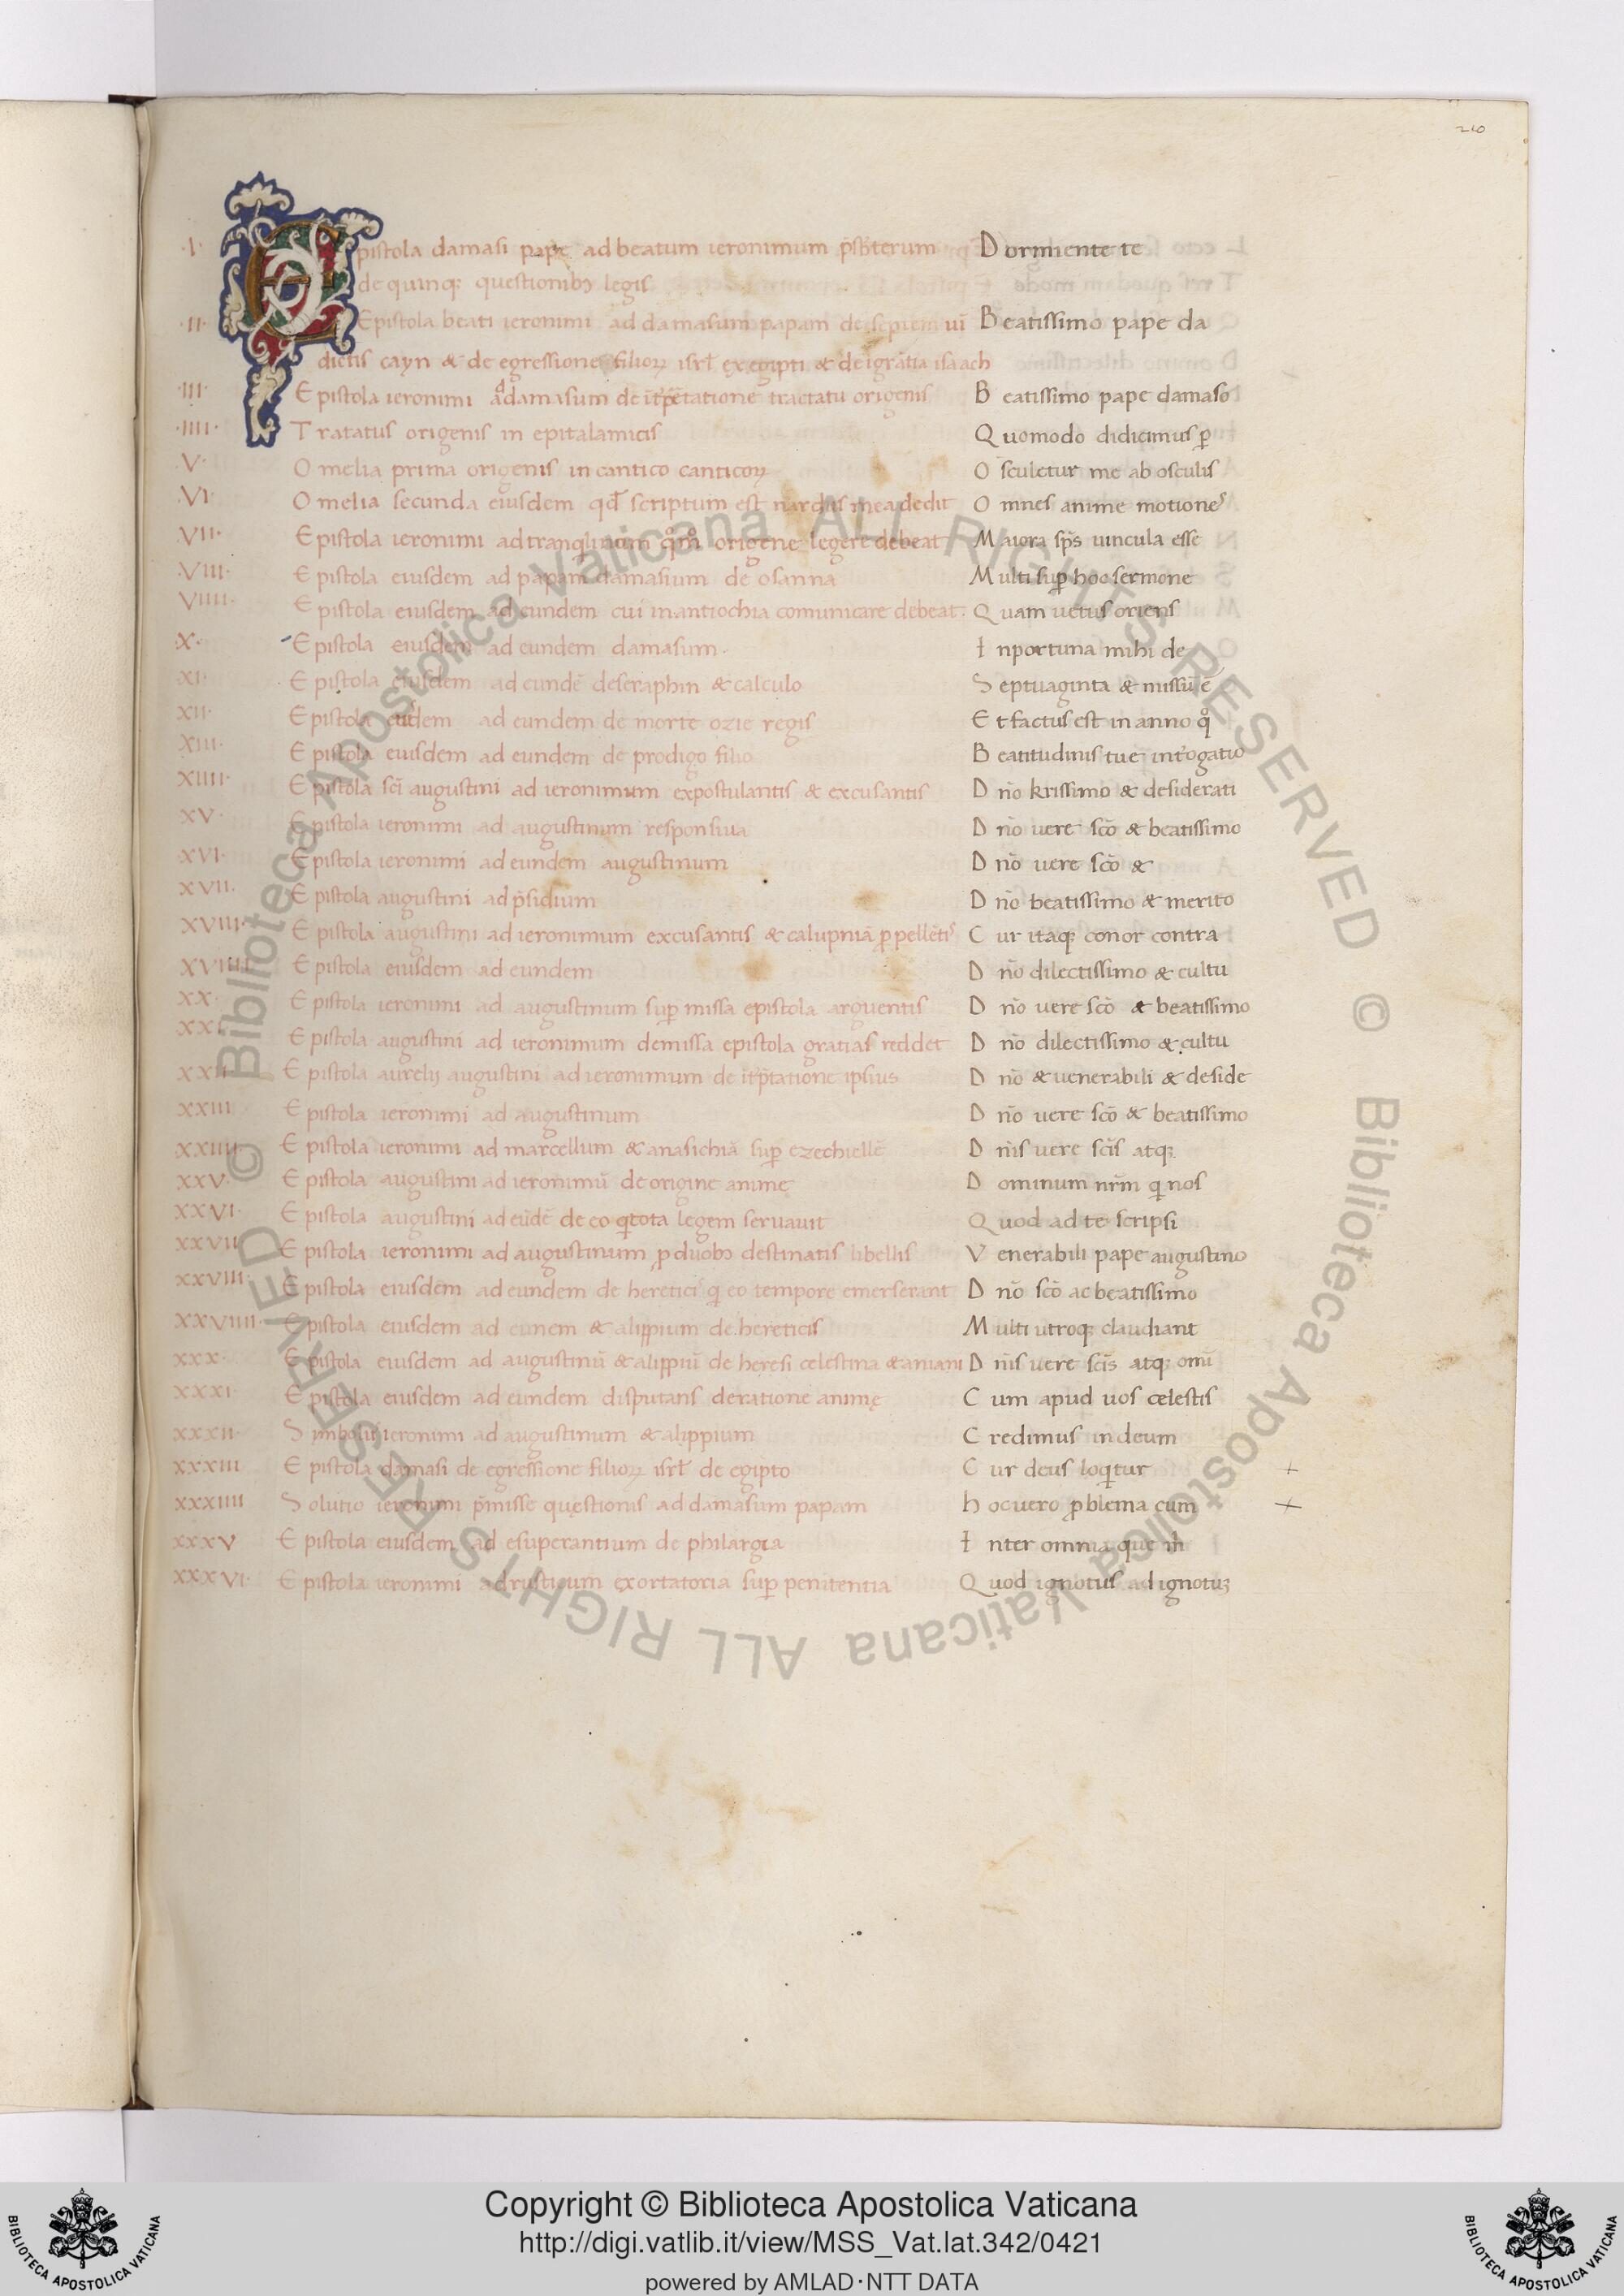 210
·I· Epistola damasi pape ad beatum ieronimum p̄sb̄terum Dormiente te
de quinq; questionibꝫ legis
·II· Epistola beati ieronimi ad damasum papam de septem uī Beatissimo pape da
dictis cayn & de egressione filioꝝ isrl̄ ex egipti & de igrātia isaach
·III· Epistola ieronimi ad damasum de it̄p̄etatione tractatu origenis Beatissimo pape damaso
·IIII· Tratatus origenis in epitalamicis Quomodo didicimus ꝑ
·V· Omelia prima origenis in cantico canticoꝝ Osculetur me ab osculis
·VI· Omelia secunda eiusdem qd̄ scriptum est nardus mea dedit Omnes anime motiones
·VII· Epistola ieronimi ad tranq̇linum q̊m̊ origene legere debeat Maiora sp̄s uincula esse
·VIII· Epistola eiusdem ad papam damasium de osanna Multi suꝑ hoc sermone
·VIIII· Epistola eiusdem ad eundem cui in antiochia comunicare debeat· Quam uetus oriens
·X· Epistola eiusdem ad eundem damasum· Inportuna mihi de
·XI· Epistola eiusdem ad eundē de seraphin & calculo Septuaginta & missū ē
·XII· Epistola eiusdem ad eundem de morte ozie regis Et factus est in anno q̊
·XIII· Epistola eiusdem ad eundem de prodigo filio Beatitudinis tue int̄rogatio
XIIII· Epistola sc̄i augustini ad ieronimum expostulantis & excusantis Dn̄o krissimo & desiderati
XV· Epistola ieronimi ad augustinum responsiua Dn̄o uere sc̄o & beatissimo
XVI· Epistola ieronimi ad eundem augustinum Dn̄o uere sc̄o &
XVII· Epistola augustini ad p̄sidium Dn̄o beatissimo & merito
XVIII· Epistola augustini ad ieronimum excusantis & calupniā ꝓpellētis Cur itaq; conor contra
XVIIII Epistola eiusdem ad eundem Dn̄o dilectissimo & cultu
XX· Epistola ieronimi ad augustinum suꝑ missa epistola arguentis Dn̄o uere sc̄o & beatissimo
XXI Epistola augustini ad ieronimum de missa epistola gratias reddet Dn̄o dilectissimo & cultu
XXII Epistola aurelij augustini ad ieronimum de it̄p̄tatione ipsius Dn̄o & uenerabili & deside
XXIII Epistola ieronimi ad augustinum Dn̄o uere sc̄o & beatissimo
XXIIII Epistola ieronimi ad marcellum & anasichiā suꝑ ezechiellē Dn̄is uere sc̄is atq;
XXV· Epistola augustini ad ieronimū de origine animę Dominum nr̄m q̇ nos
XXVI· Epistola augustini ad eūdē de eo q̇ tota legem seruauit Quod ad te scripsi
XXVII Epistola ieronimi ad augustinum ꝓ duobꝫ destinatis libellis Venerabili pape augustino
XXVIII· Epistola eiusdem ad eundem de hereticis q̇ eo tempore emerserant Dn̄o sc̄o ac beatissimo
XXVIIII· Epistola eiusdem ad eunem & alippium de hereticis Multi utroq; claudiant
XXX· Epistola eiusdem ad augustinū & alippiū de heresi celestina & aniani Dn̄is uere sc̄is atq; omī
XXXI· Epistola eiusdem ad eundem disputans de ratione animę Cum apud uos celestis
XXXII· Simbolū ieronimi ad augustinum & alippium Credimus in deum
XXXIII Epistola damasi de egressione filioꝝ isrl̄ de egipto Cur deus loq̇tur +
XXXIIII Solutio ieronimi p̄misse questionis ad damasum papam Hoc uero ꝓblema cum +
XXXV Epistola eiusdem ad esuperantium de philargia Inter omnia que m̄
XXXVI· Epistola ieronimi ad rusticum exortatoria suꝑ penitentia Quod ignotus ad ignotuꝫ
© Biblioteca Apostolica Vaticana ALL RIGHTS RESERVED © Biblioteca Apostolica Vaticana ALL RIGHTS RESERVED
Copyright © Biblioteca Apostolica Vaticana
http://digi.vatlib.it/view/MSS_Vat.lat.342/0421
powered by AMLAD·NTT DATA
BIBLIOTECA APOSTOLICA VATICANA
BIBLIOTECA APOSTOLICA VATICANA